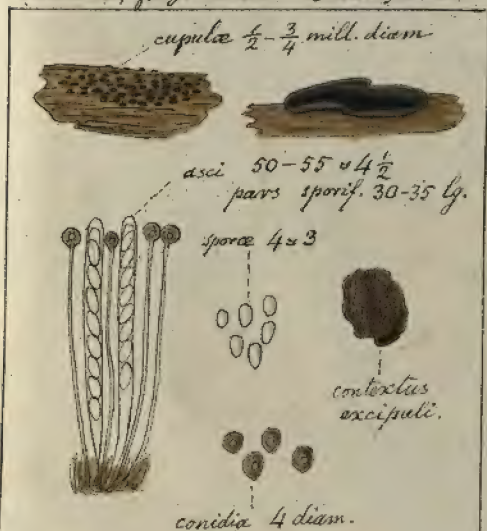 cupulæ ½ - ¾ mill. diam
asci 50-55 ≈ 4½
pars sporif. 30-35 lg.
sporæ 4 ≈ 3
contextus
excipuli.
conidia 4 diam.